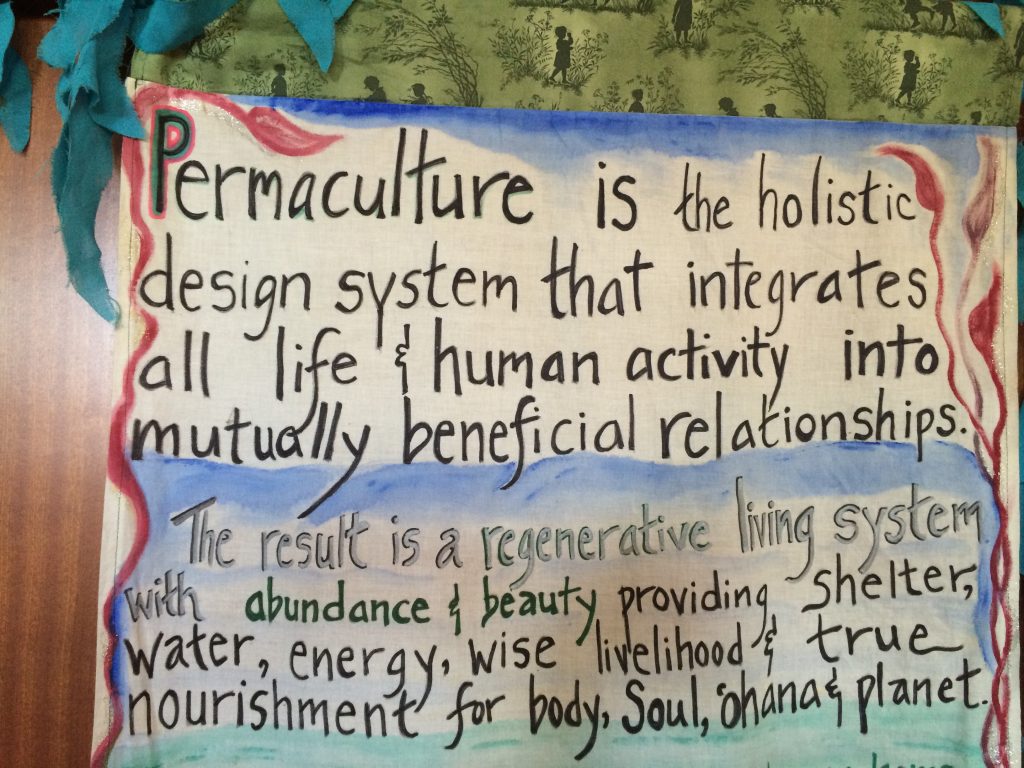 Permaculture is the holistic
design system that integrates
all life & human activity into
mutually beneficial relationships.
The result is a regenerative living system
with abundance & beauty providing shelter,
water, energy, wise livelihood & true
nourishment for body, Soul, 'ohana & planet.